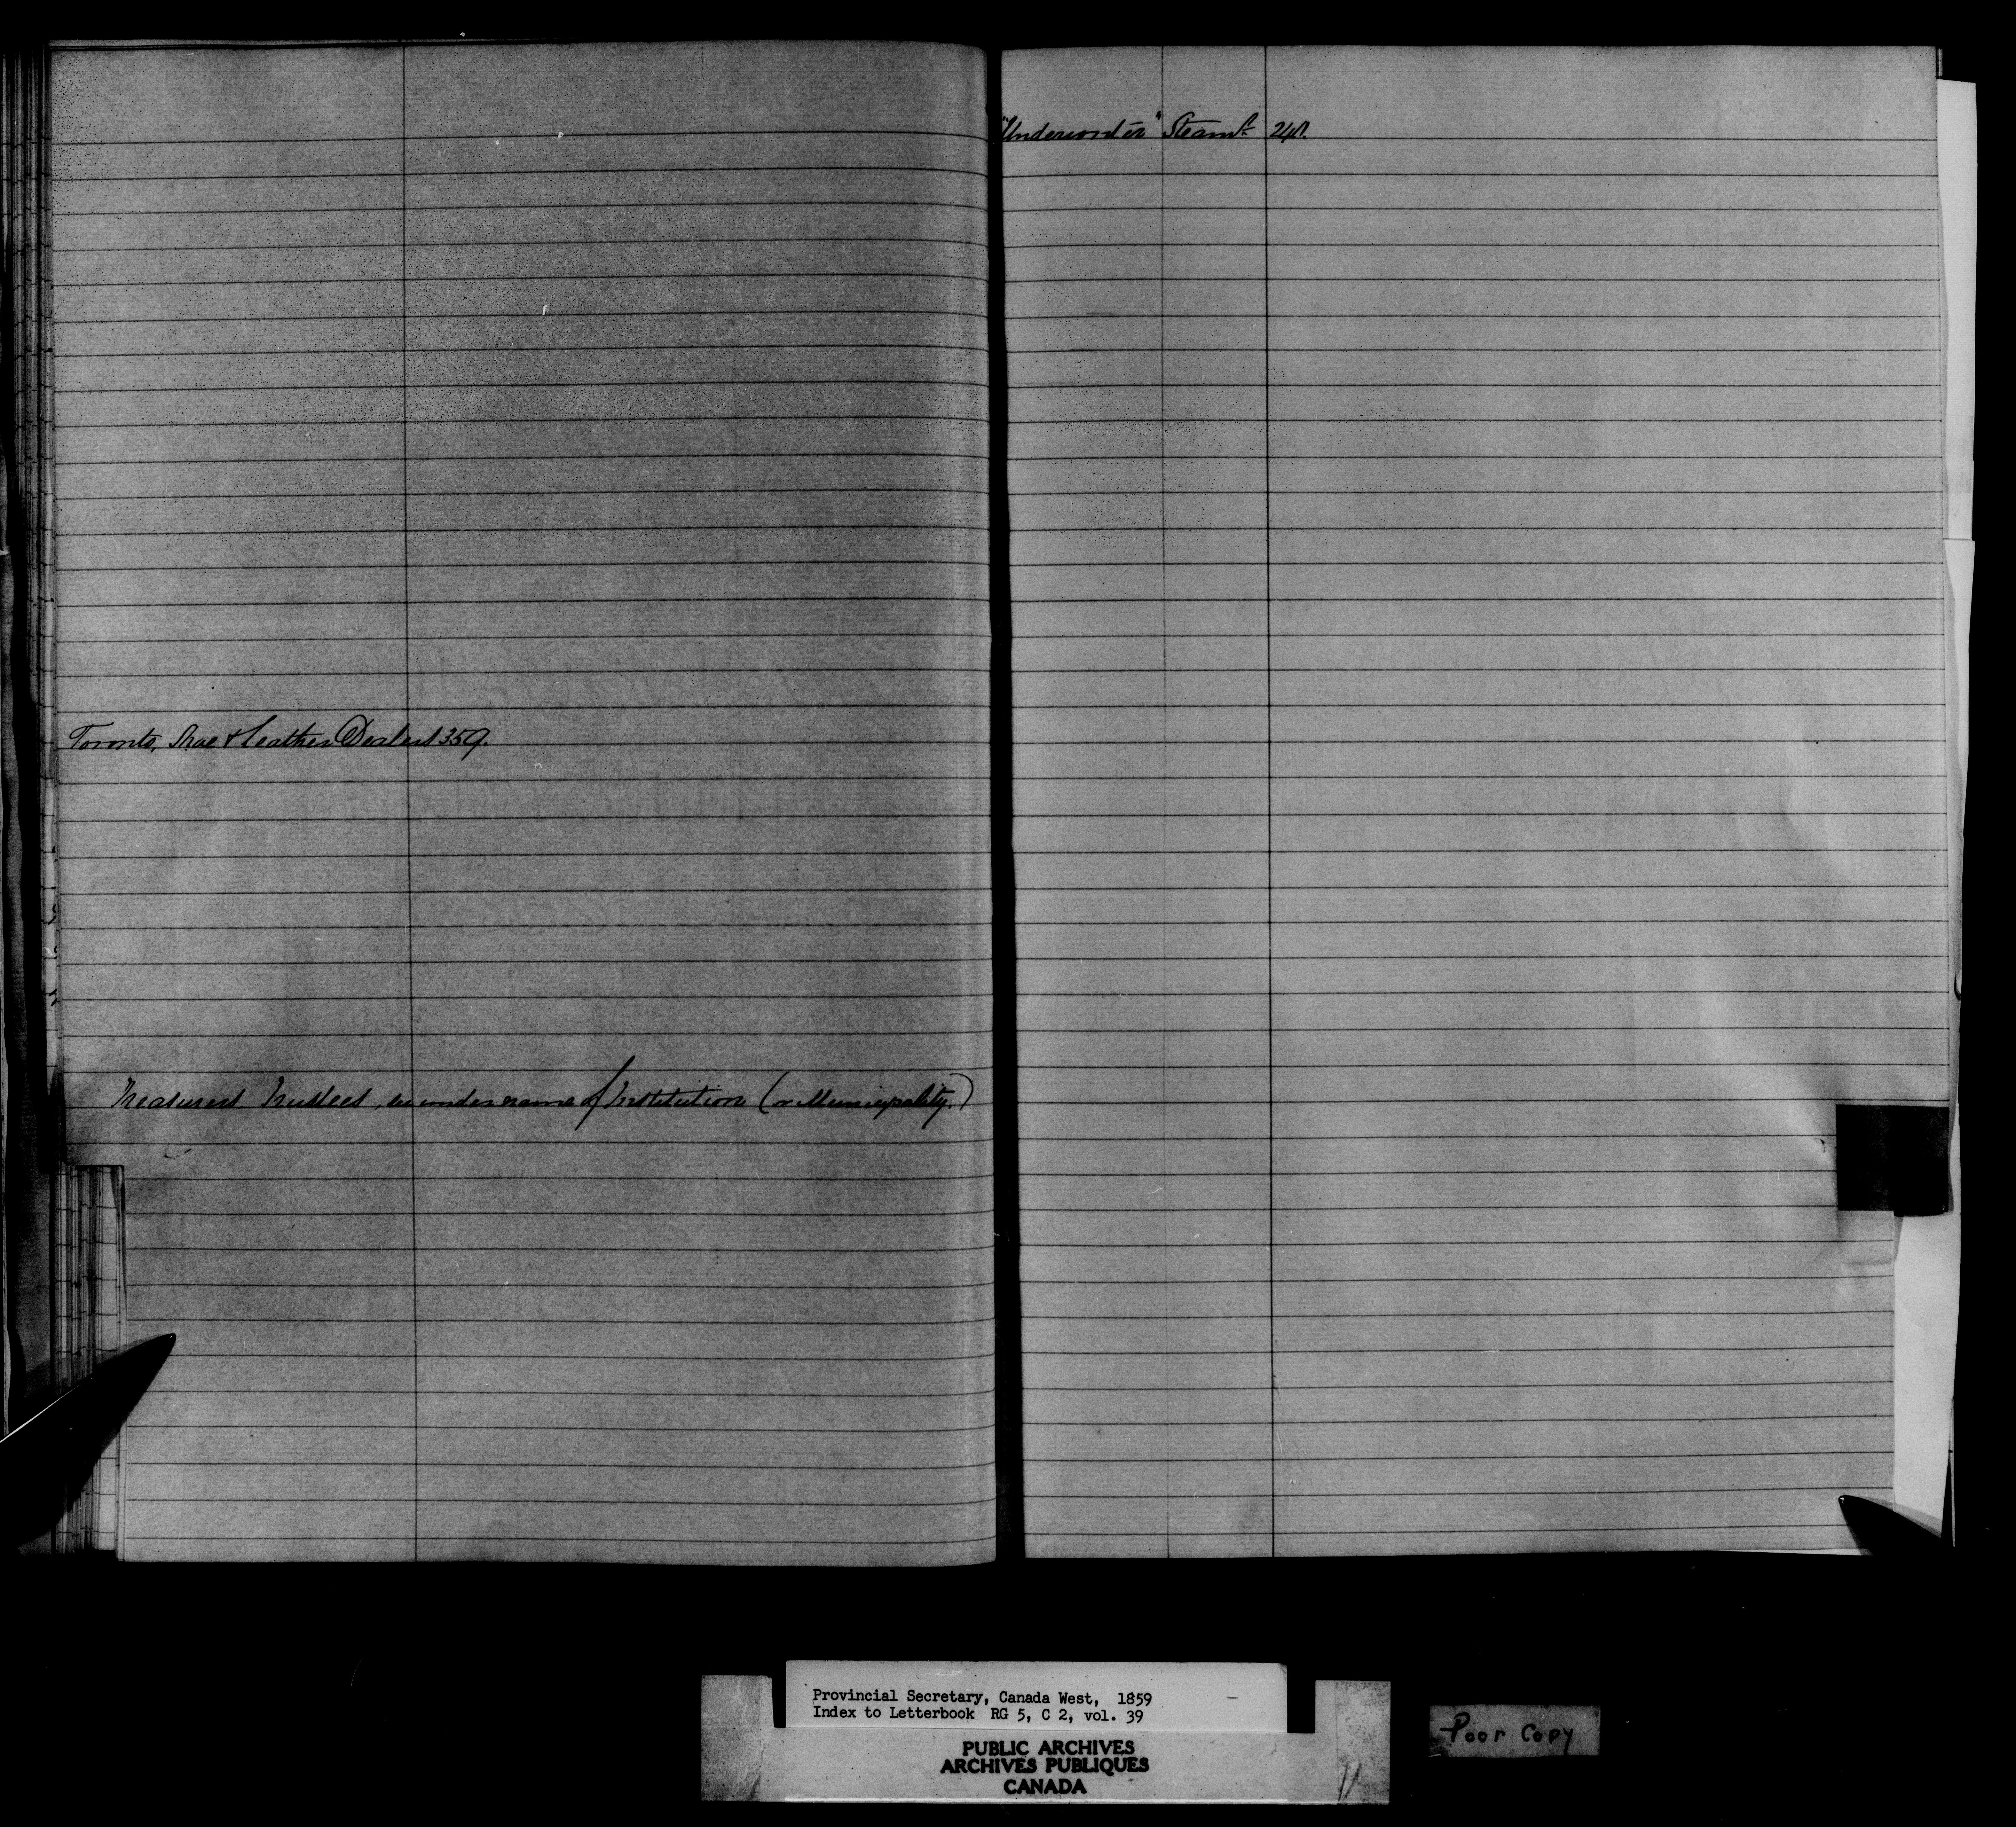 Toronto, Shoe & Leather Dealers 359.
Treasurers Trustees, see under name of Institution (or Municipality.)
Steamr
Provincial Secretary, Canada West, 1859
Index to Letterbook RG 5, C 2, vol. 39
PUBLIC ARCHIVES
ARCHIVES PUBLIQUES
CANADA
Poor Copy